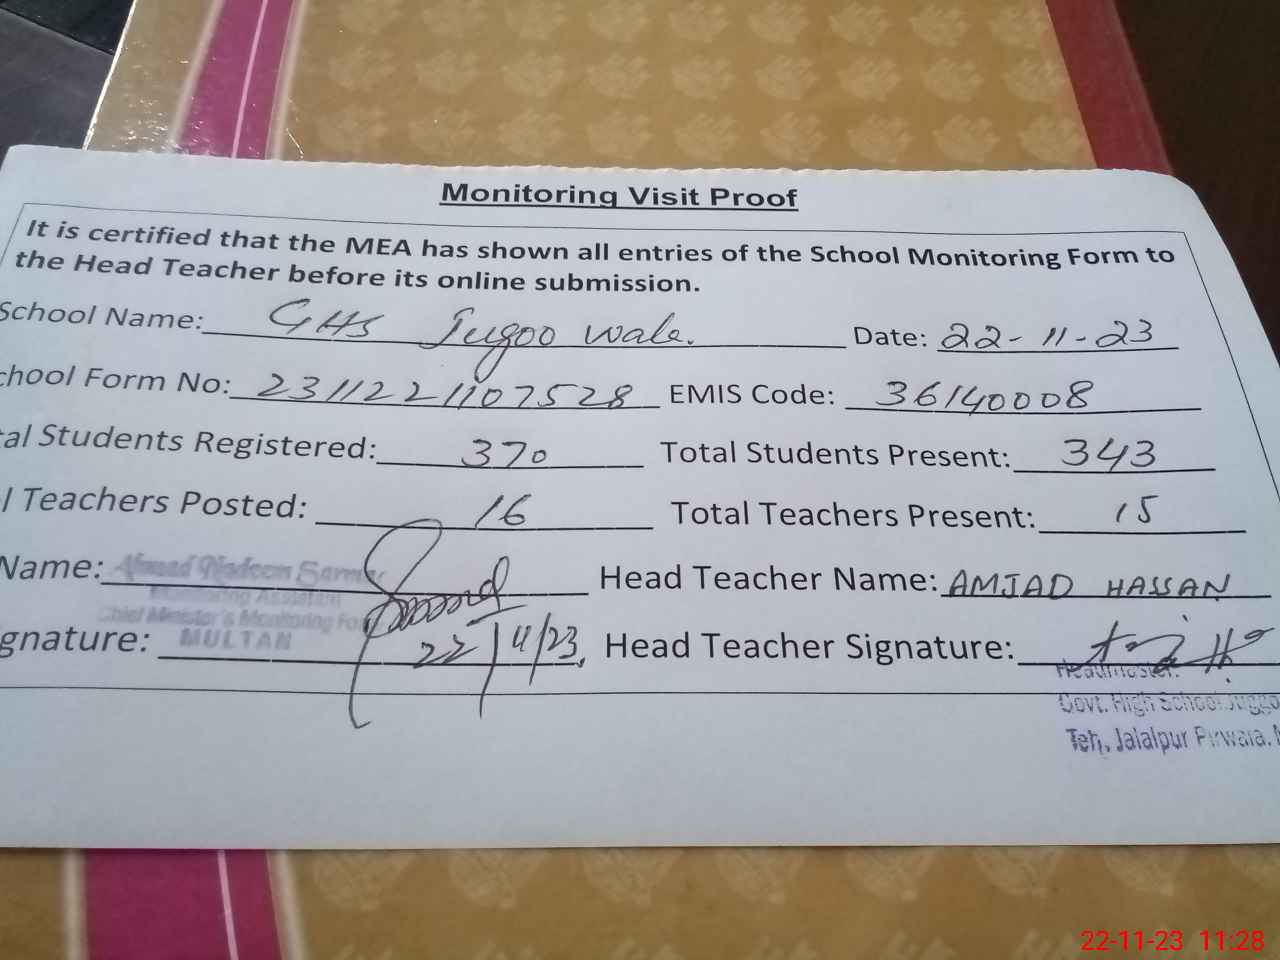 Monitoring Visit Proof
It is certified that the MEA has shown all entries of the School Monitoring Form to
the Head Teacher before its online submission.
School Name: GHS Jugoo wala. Date: 22-11-23
chool Form No: 2311221107528 EMIS Code: 36140008
tal Students Registered: 370 Total Students Present: 343
l Teachers Posted: 16 Total Teachers Present: 15
Name: Ahmad Nadeem Head Teacher Name: AMJAD HASSAN
Monitoring Assistant
Chief Minister's Monitoring Fo
MULTAN
gnature: 22/11/23, Head Teacher Signature:
Headmaster.
Govt. High School Juggo
Teh, Jalalpur Pirwala.
22-11-23 11:28